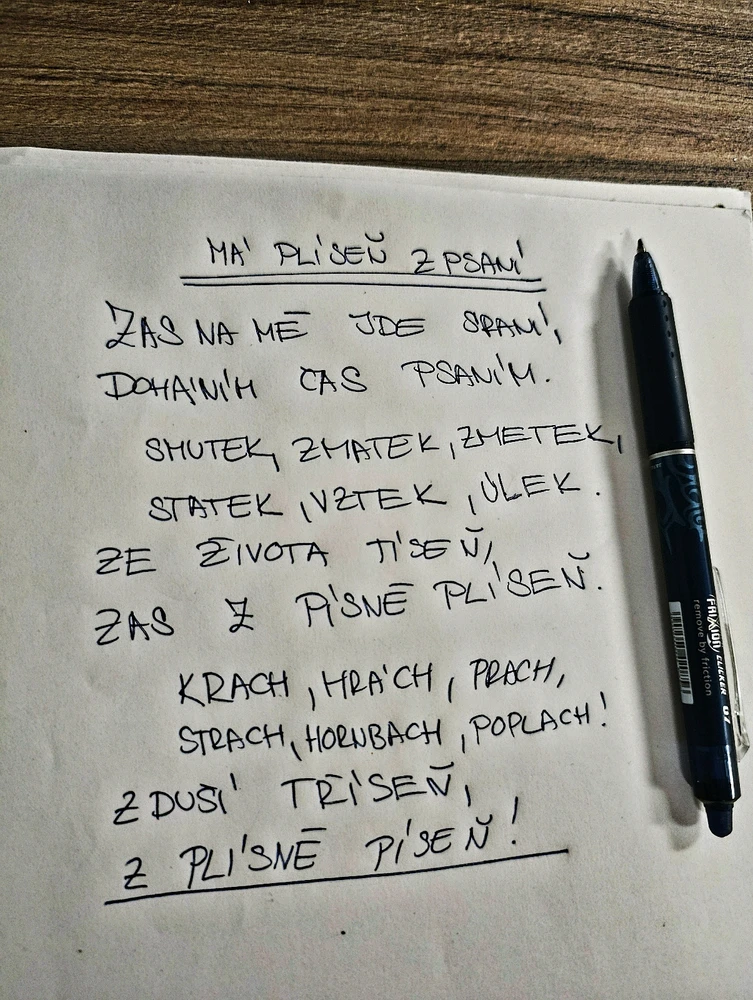 MÁ PLÍSEŇ Z PSANÍ
ZAS NA MĚ JDE SPANÍ,
DOHÁNÍM ČAS PSANÍM.
SMUTEK, ZMATEK, ZMETEK,
STATEK, VZTEK, ÚLEK.
ZE ŽIVOTA TÍSEŇ,
ZAS Z PÍSNĚ PLÍSEŇ.
KRACH, HRÁCH, PRACH,
STRACH, HORNBACH, POPLACH!
ZDUŠÍ TŘÍSEŇ,
Z PLÍSNĚ PÍSEŇ!
FRIXION CLICKER 07
remove by friction